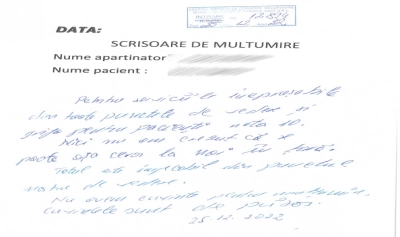 DATA:
SCRISOARE DE MULTUMIRE
Nume apartinator
Nume pacient :
Pentru serviciile ireproșabile
din toate punctele de vedere, și
grija pentru pacienți nota 10.
Nici nu am crezut că se
poate așa ceva la noi în țară.
Totul este impecabil din punctul
de vedere.
Nu avem cuvinte pentru
cuvintele sunt de prisos.
25.12.2022